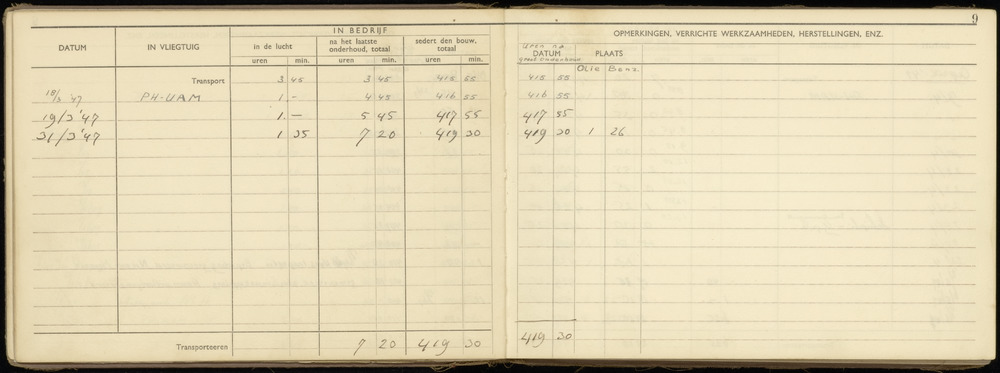 9
IN BEDRIJF
DATUM IN VLIEGTUIG in de lucht na het laatste onderhoud, totaal sedert den bouw, totaal
uren min. uren min. uren min.
Transport 3 45 3 45 415 55
18/3 '47 PH-UAM 1 - 4 45 416 55
19/3 '47 1 - 5 45 417 55
31/3 '47 1 35 7 20 419 30
Transporteeren 7 20 419 30
OPMERKINGEN, VERRICHTE WERKZAAMHEDEN, HERSTELLINGEN, ENZ.
uren na
DATUM PLAATS
groot onderhoud
Olie Benz.
415 55
416 55
417 55
419 30 1 26
419 30